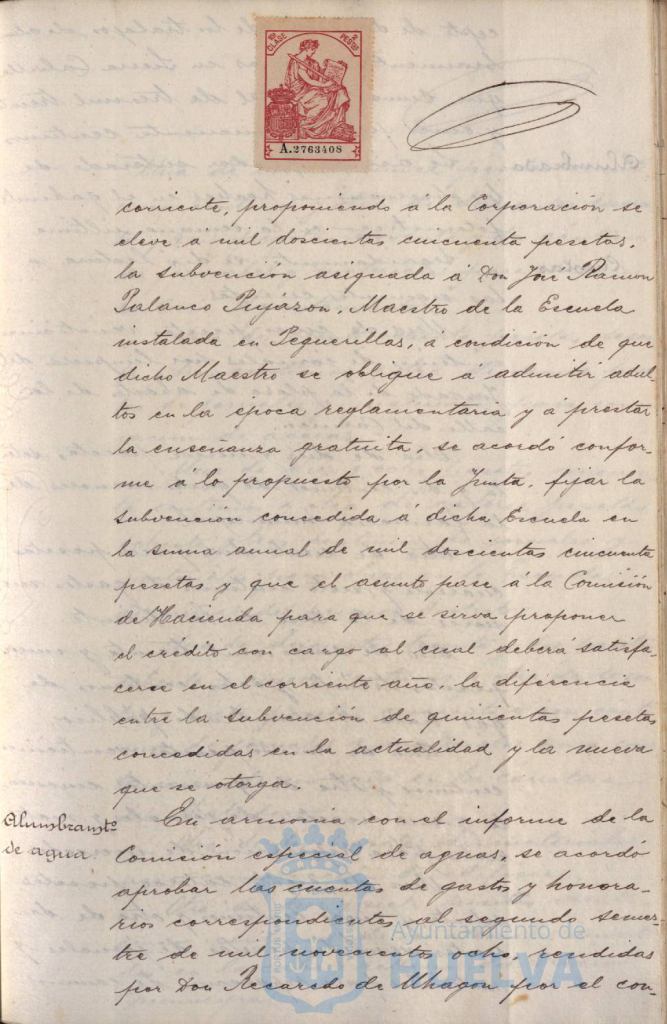 10ª CLASE PESETA
A.2763408
corriente, proponiendo á la Corporación se
eleve á mil doscientas cincuenta pesetas,
la subvención asignada á Don José Ramon
Palanco Pujazon, Maestro de la Escuela
instalada en Peguerillas, á condición de que
dicho Maestro se obligue á admitir adul-
tos en la época reglamentaria y á prestar
la enseñanza gratuita, se acordó confor-
me á lo propuesto por la Junta, fijar la
subvención concedida á dicha Escuela en
la suma anual de mil doscientas cincuenta
pesetas y que el asunto pase á la Comisión
de Hacienda para que se sirva proponer
el crédito con cargo al cual deberá satisfa-
cerse en el corriente año, la diferencia
entre la subvención de quinientas pesetas
concedidas en la actualidad y la nueva
que se otorga.
Alumbramtº
de agua
En armonia con el informe de la
Comisión especial de aguas, se acordó
aprobar las cuentas de gastos y honora-
rios correspondientes al segundo semes-
tre de mil novecientos ocho, rendidas
por Don Recaredo de Uhagon por el con-
Ayuntamiento de
HUELVA